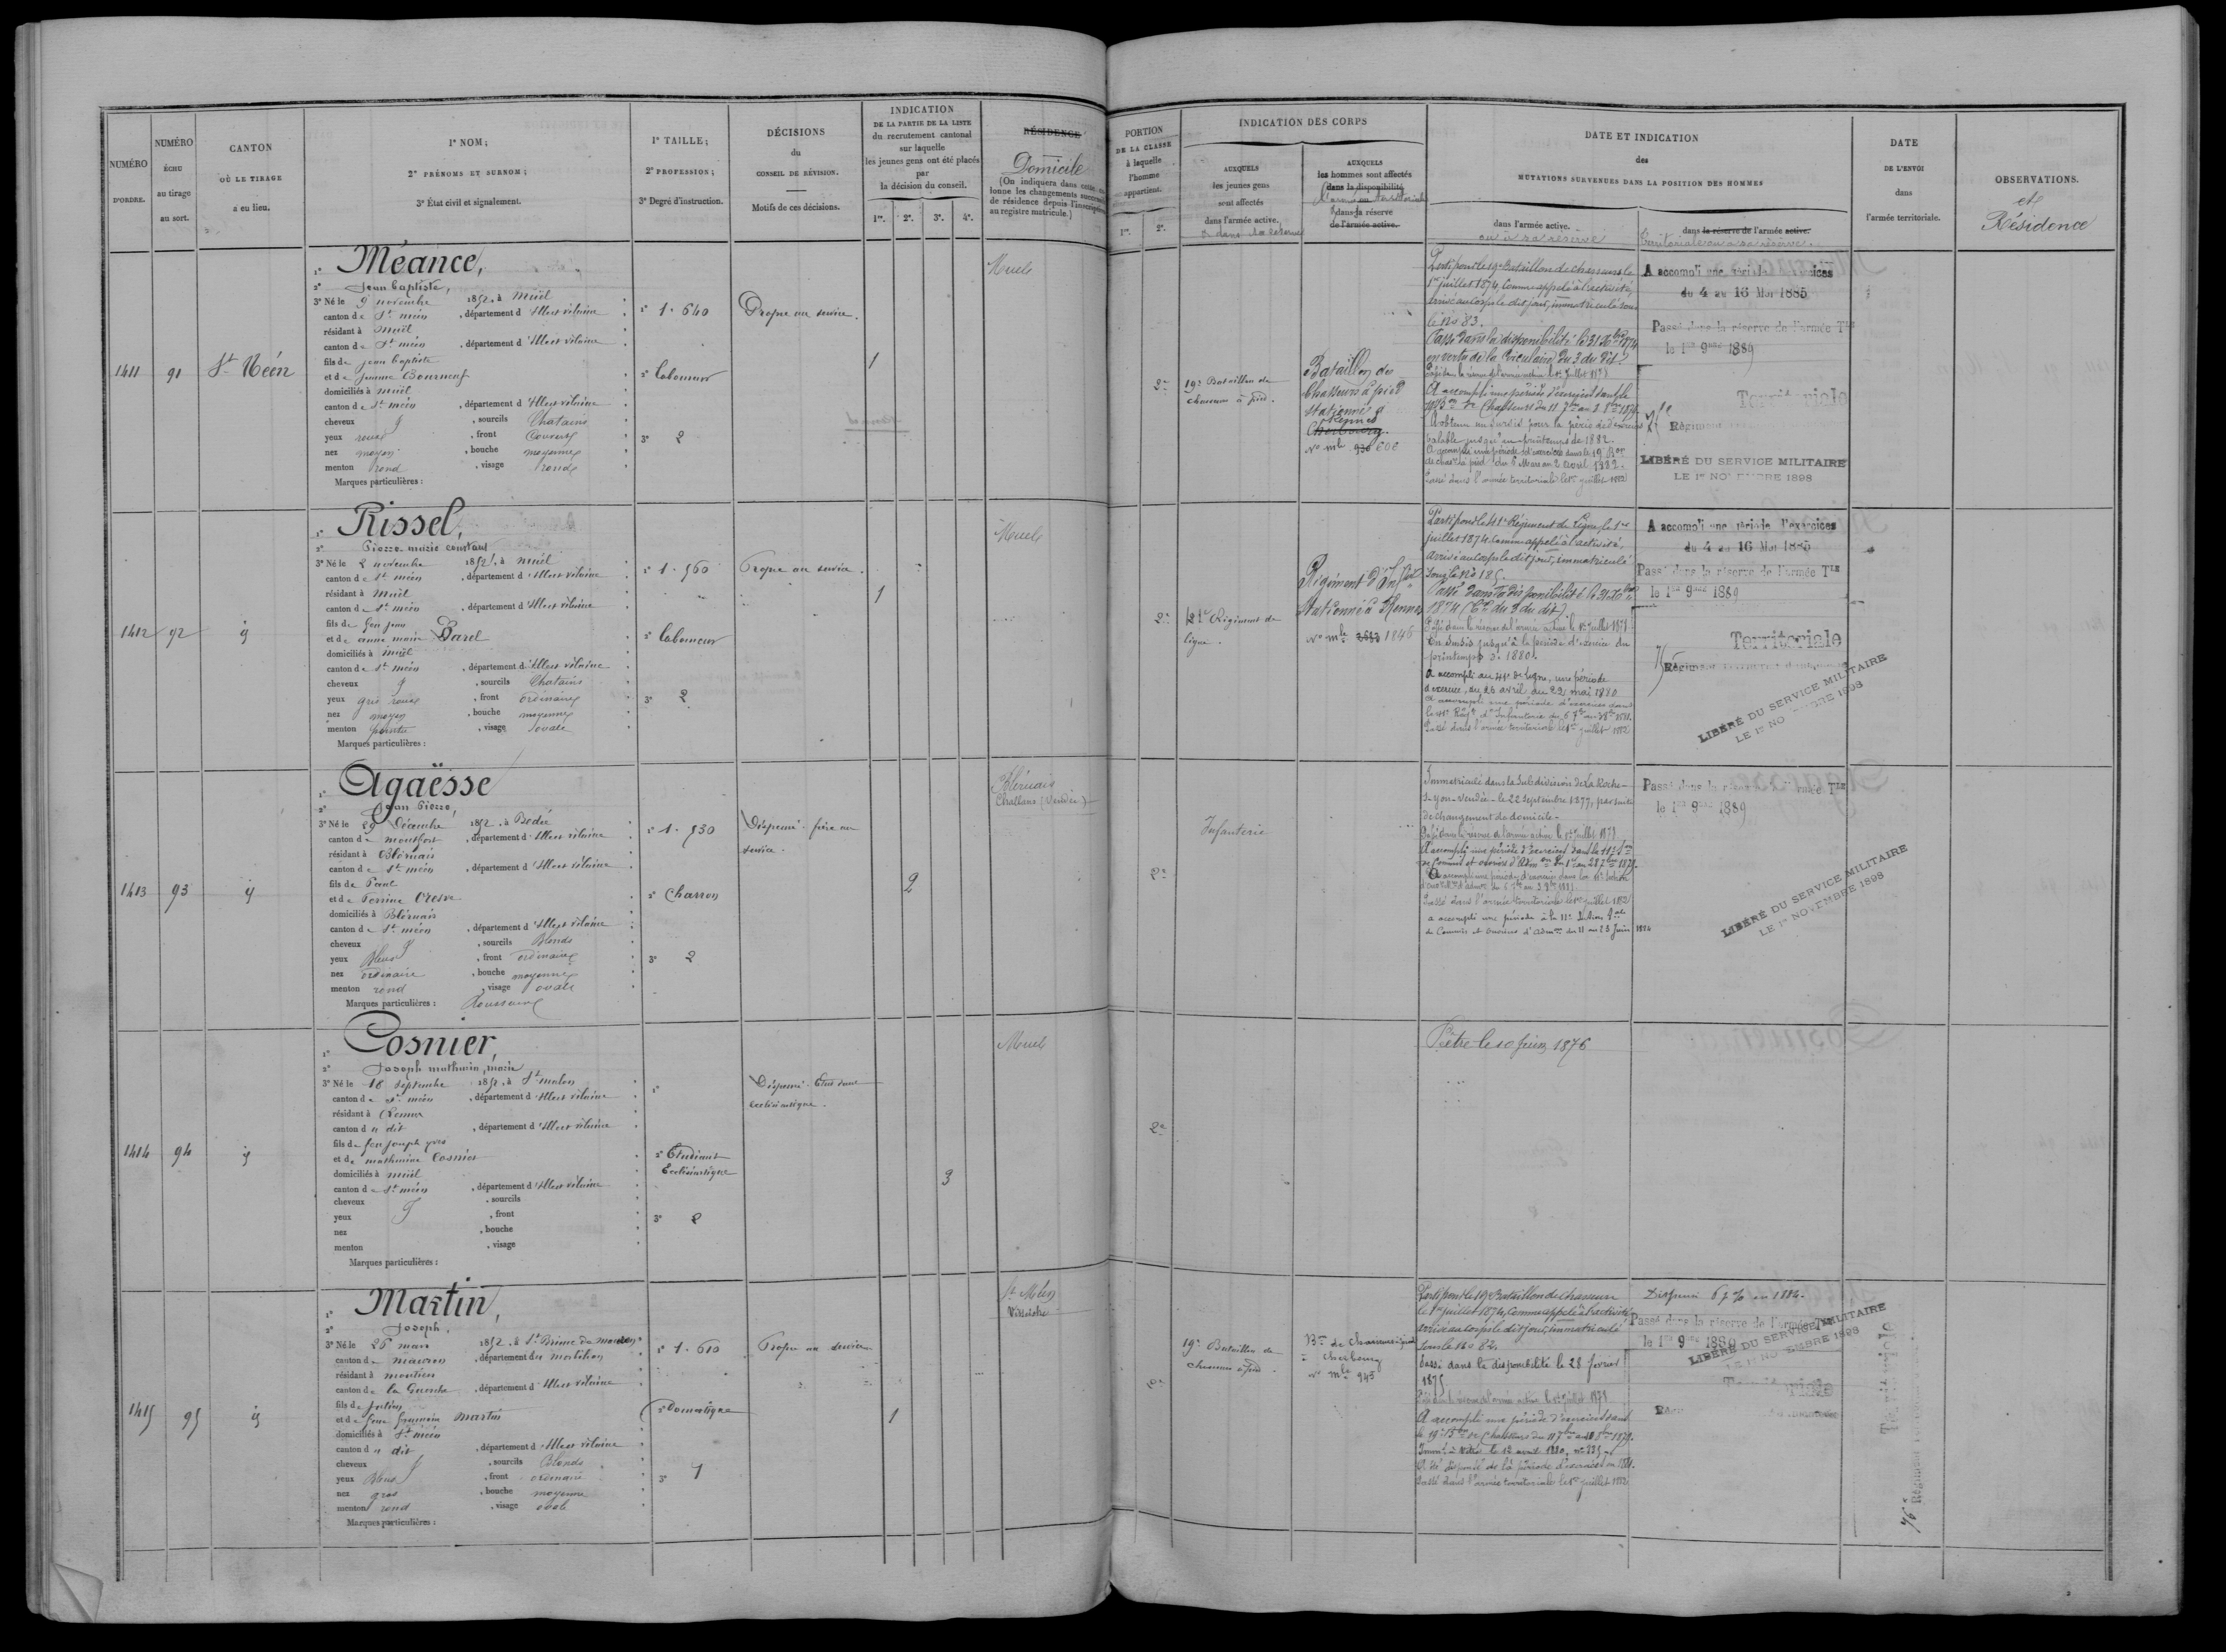 NUMÉRO D'ORDRE.
NUMÉRO ÉCHU au tirage au sort.
CANTON OÙ LE TIRAGE a eu lieu.
1° NOM;
2° PRÉNOMS ET SURNOM;
3° État civil et signalement.
1° TAILLE;
2° PROFESSION;
3° Degré d'instruction.
DÉCISIONS
du
CONSEIL DE RÉVISION.
Motifs de ces décisions.
INDICATION
DE LA PARTIE DE LA LISTE
du recrutement cantonal
sur laquelle
les jeunes gens ont été placés
par
la décision du conseil.
1re. 2e. 3e. 4e.
RÉSIDENCE
Domicile
(On indiquera dans cette colonne les changements successifs de résidence depuis l'inscription au registre matricule.)
PORTION
DE LA CLASSE
à laquelle
l'homme
appartient.
1re. 2e.
INDICATION DES CORPS
AUXQUELS
les jeunes gens
sont affectés
dans l'armée active.
& dans la réserve
AUXQUELS
les hommes sont affectés
dans la disponibilité
dans la réserve
de l'armée active.
DATE ET INDICATION
des
MUTATIONS SURVENUES DANS LA POSITION DES HOMMES
dans l'armée active.
ou à sa réserve
dans la réserve de l'armée active.
territoriale ou à sa réserve.
DATE
DE L'ENVOI
dans
l'armée territoriale.
OBSERVATIONS.
et
Résidence
1411
91
St Méen
1° Méance,
2° Jean Baptiste,
3° Né le 9 novembre 1852, à Muël
canton de St méen, département d'Ille et vilaine
résidant à Muël
canton de St méen, département d'Ille et vilaine
fils de jean baptiste
et de jeanne Bourneuf
domiciliés à muël
canton de St méen, département d'Ille et vilaine
cheveux, sourcils Chatains
yeux roux, front Couvert
nez moyen, bouche moyenne
menton rond, visage rond
Marques particulières :
1° 1.640
2° laboureur
3° 2
Propre au service.
1
Muel
2e
19e Bataillon de
chasseurs à pied.
Bataillon des
Chasseurs à pied
stationné à
Rennes
Cherbourg.
No mle 930 606
Parti pour le 19e Bataillon de chasseurs le
1er juillet 1874, comme appelé à l'activité,
arrivé au corps le dit jour, immatriculé sous
le No 83.
Passé dans la disponibilité le 31 Xbre 1874
en vertu de la Circulaire du 3 du dit.
Passé dans la réserve de l'armée active le 1er juillet 1878
A accompli une période d'exercices dans le
A obtenu un sursis pour la période d'exercices
valable jusqu'au printemps de 1882.
A accompli une période d'exercices dans le 19e Bon
Passé dans l'armée territoriale le 1er juillet 1882
A accompli une période d'exercices
du 4 au 16 Mai 1885
Passé dans la réserve de l'armée Tle
le 1er 9bre 1889
Territoriale
Régiment
LIBÉRÉ DU SERVICE MILITAIRE
LE 1er NOVEMBRE 1898
1412
92
id
1° Rissel,
2° Pierre marie constant
3° Né le 2 novembre 1852, à Muël
canton de St méen, département d'Ille et vilaine
résidant à Muël
canton de St méen, département d'Ille et vilaine
fils de feu jean
et de anne marie Barel
domiciliés à muël
canton de St méen, département d'Ille et vilaine
cheveux, sourcils Chatains
yeux gris roux, front ordinaire
nez moyen, bouche moyenne
menton pointu, visage ovale
Marques particulières :
1° 1.560
2° laboureur
3° 2
Propre au service.
1
Muel
2e
41e Régiment de
ligne.
Régiment d'Infie
stationné à Rennes
No mle 2683 1846
Parti pour le 41e Régiment de Ligne le 1er
juillet 1874, comme appelé à l'activité,
arrivé au corps le dit jour, immatriculé
sous le No 185.
Passé dans la disponibilité le 31 Xbre
1874 (Cre du 3 du dit).
Passé dans la réserve de l'armée active le 1er juillet 1878
En sursis jusqu'à la période d'exercice du
printemps de 1880.
A accompli au 41e de ligne, une période
d'exercice, du 25 avril au 22 mai 1880
A accompli une période d'exercices dans
Passé dans l'armée territoriale le 1er juillet 1882
A accompli une période d'exercices
du 4 au 16 Mai 1885
Passé dans la réserve de l'armée Tle
le 1er 9bre 1889
Territoriale
Régiment
LIBÉRÉ DU SERVICE MILITAIRE
LE 1er NOVEMBRE 1898
1413
93
id
1° Agaësse
2° Jean Pierre,
3° Né le 29 Décembre 1852, à Bedée
canton de montfort, département d'Ille et vilaine
résidant à Bléruais
canton de St méen, département d'Ille et vilaine
fils de Paul
et de Perrine Cresve
domiciliés à Bléruais
canton de St méen, département d'Ille et vilaine
cheveux, sourcils Blonds
yeux Bleus, front ordinaire
nez ordinaire, bouche moyenne
menton rond, visage ovale
Marques particulières : Rousseurs
1° 1.530
2° Charron
3° 2
Dispensé. frère au
service.
2
Bléruais
Challans (Vendée)
2e
Infanterie
Immatriculé dans la Subdivision de La Roche-
s-yon-Vendée- le 22 Septembre 1877, par suite
de changement de domicile-
Passé dans la réserve de l'armée active le 1er juillet 1878
Passé dans l'armée territoriale le 1er juillet 1882
a accompli une période à la 11e Section Tale
de Commis et ouvriers d'Admon du 11 au 23 Juin 1884
Passé dans la réserve de l'armée Tle
le 1er 9bre 1889
LIBÉRÉ DU SERVICE MILITAIRE
LE 1er NOVEMBRE 1898
1414
94
id
1° Cosnier,
2° Joseph mathurin, marie
3° Né le 18 septembre 1852, à St malon
canton de St méen, département d'Ille et vilaine
résidant à Rennes
canton d u dit, département d'Ille et vilaine
fils de feu joseph yves
et de mathurine Cosnier
domiciliés à muël
canton de St méen, département d'Ille et vilaine
cheveux, sourcils
yeux, front
nez, bouche
menton, visage
Marques particulières :
1°
2° Etudiant
Ecclésiastique
3° 2
Dispensé. Etudiant
ecclésiastique.
3
Muel
2e
Prêtre le 10 juin 1876
1415
95
id
1° Martin,
2° Joseph,
3° Né le 26 mars 1852, à St Brieuc de mauron
canton de mauron, département du morbihan
résidant à moutiers
canton de la Guerche, département d'Ille et vilaine
fils de julien
et de feue françoise martin
domiciliés à St méen
canton d u dit, département d'Ille et vilaine
cheveux, sourcils Blonds
yeux Bleus, front ordinaire
nez gros, bouche moyenne
menton rond, visage ovale
Marques particulières :
1° 1.610
2° Domestique
3° 1
Propre au service
1
St Méen
Visseiche
19e Bataillon de
chasseurs à pied.
Bon de chasseurs à pied
Cherbourg
No mle 945
Parti pour le 19e Bataillon de chasseurs
le 1er juillet 1874, comme appelé à l'activité,
arrivé au corps le dit jour, immatriculé
sous le No 82.
Passé dans la disponibilité le 28 fevrier
1875.
Passé dans la réserve de l'armée active le 1er juillet 1878
A accompli une période d'exercices dans
A été dispensé de la période d'exercices en 1881.
Passé dans l'armée territoriale le 1er juillet 1882
Dispensé 6 7 % en 1884.
Passé dans la réserve de l'armée Tle
le 1er 9bre 1889
LIBÉRÉ DU SERVICE MILITAIRE
LE 1er NOVEMBRE 1898
Territoriale
Territoriale
76e Régiment